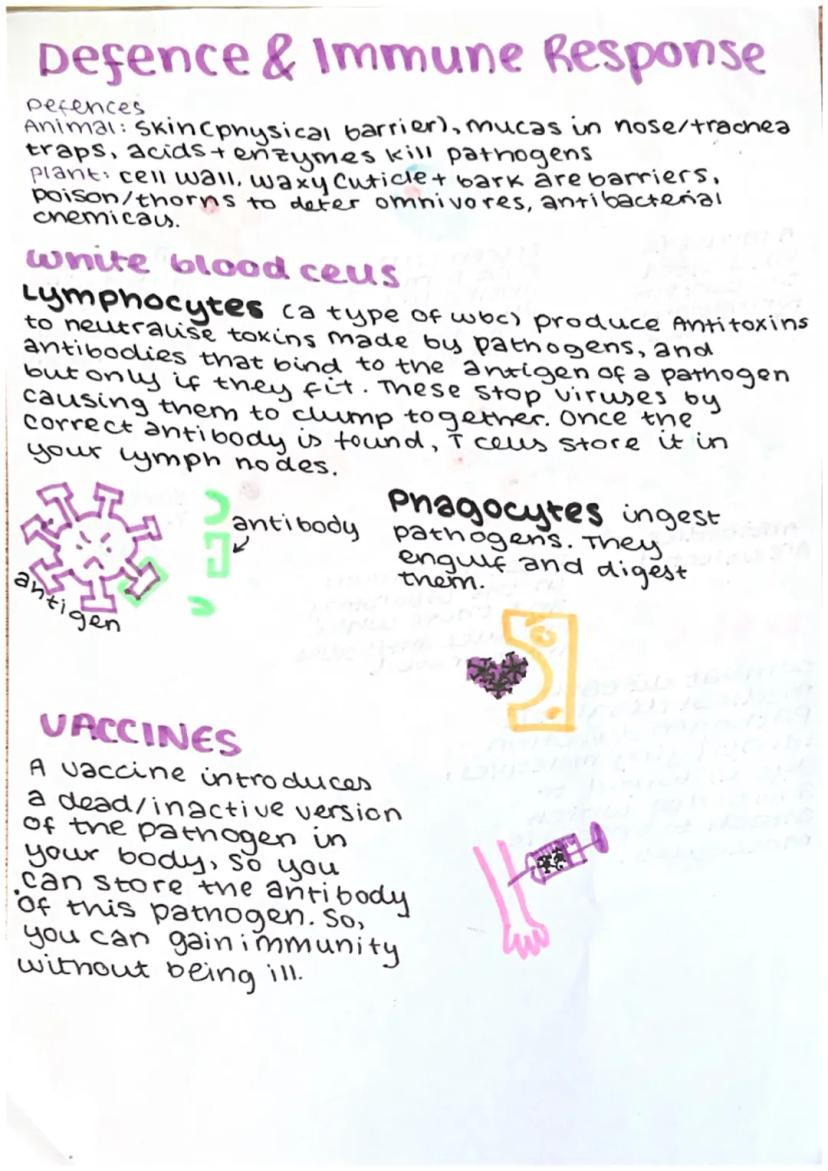 Defence & Immune Response
Defences
Animal: Skin (physical barrier), mucas in nose/trachea
traps, acids + enzymes kill pathogens
Plant: cell wall, waxy cuticle + bark are barriers,
poison/thorns to deter omnivores, antibacterial
chemicals.
White blood cells
Lymphocytes (a type of wbc) produce Antitoxins
to neutralise toxins made by pathogens, and
antibodies that bind to the antigen of a pathogen
but only if they fit. These stop viruses by
causing them to clump together. Once the
correct antibody is found, T cells store it in
your lymph nodes.
antibody
antigen
Phagocytes ingest
pathogens. They
engulf and digest
them.
VACCINES
A vaccine introduces
a dead/inactive version
of the pathogen in
your body, so you
can store the antibody
of this pathogen. So,
you can gain immunity
without being ill.